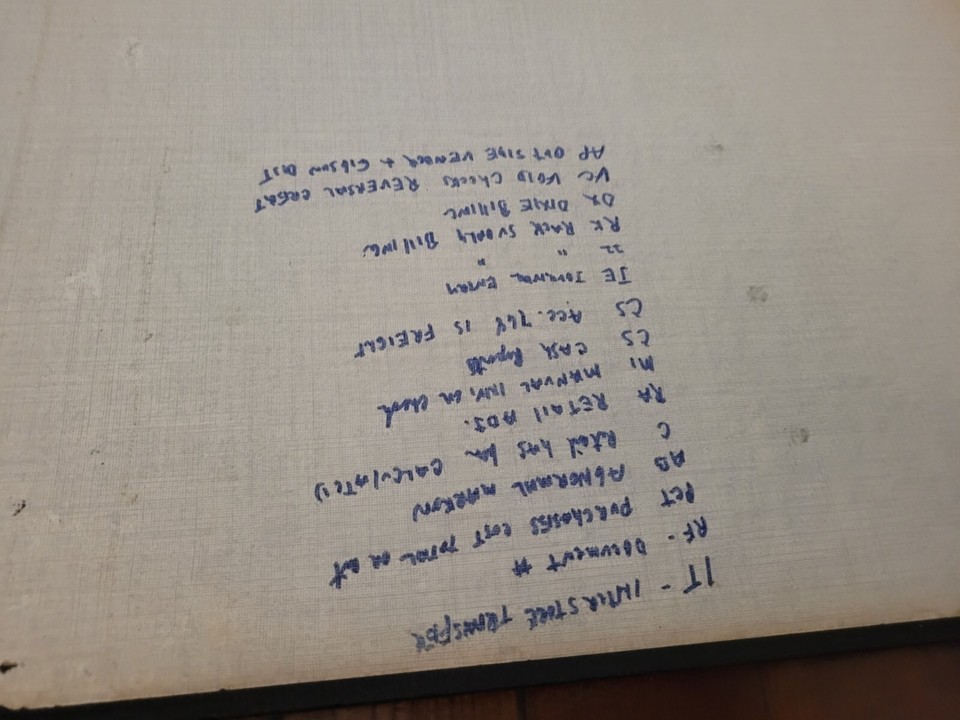 IT - INTERSTORE TRANSFER
RF - DOCUMENT #
PCT PURCHASES COST TOTAL OR
AB ABNORMAL MARKON
C Retail HAS CALCULATED
RA RETAIL ADJ.
MI MANUAL INV. ON check
CS CASH Reports
CS Acc. 768 IS FREIGHT
JE JOURNAL ENTRY
22 " "
RK RACK SUPPLY BILLING
DX DIXIE BILLING
VC VOID CHECKS REVERSAL
AP OUT SIDE VENDER + GIBSON DIST